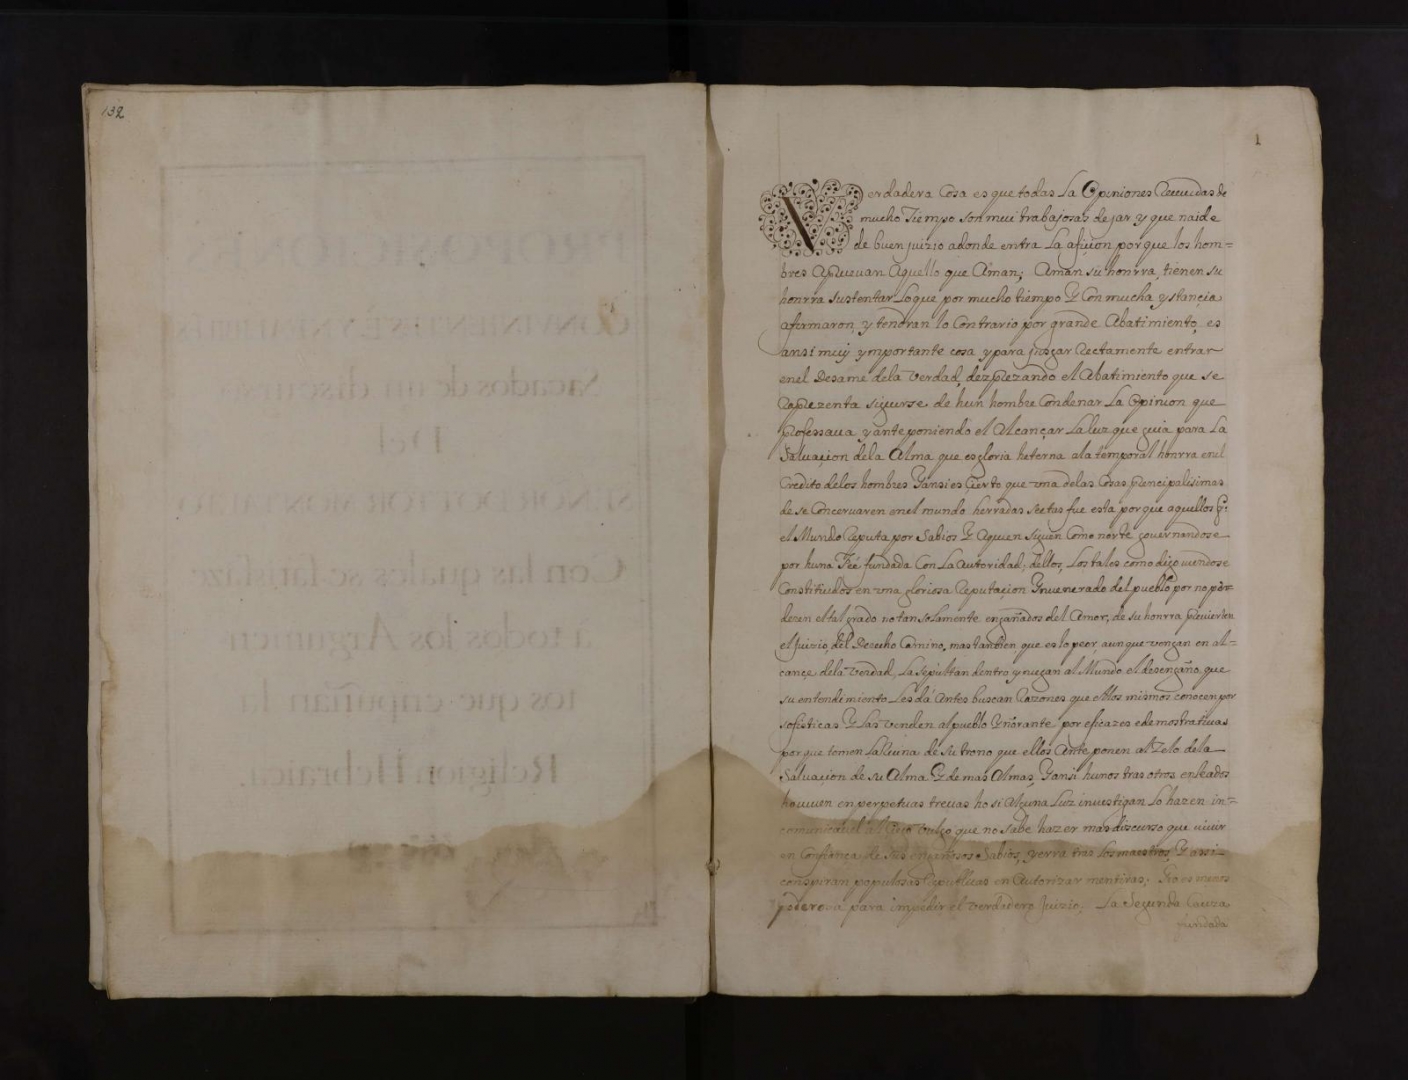 132
1
Verdadera Cosa es que todas La Opiniones Recevidas de
mucho Tiempo son mui trabajosas dejar y que naide
de buen juizio adonde entra La afiçion porque los hom=
bres Apruevan Aquello que Aman; Aman su honrra, tienen su
honrra sustentar Lo que por mucho tiempo Y Con mucha ystançia
afermaron, y tendran lo Contrario por grande Abatimiento, es
ansi muy ymportante cosa y para jusgar Rectamente entrar
en el Desame dela Verdad, dezprezando el Abatimiento que se
Reprezenta siguirse de hun hombre Condenar La Opinion que
Professava y ante poniendo el Alcançar La luz que guia para La
Salvaçion dela Alma que es gloria heterna ala temporal honrra en el
Credito delos hombres Yansi es Çierto que una delas Cosas principalisimas
de se Concervaren en el mundo herradas sectas fue esta porque aquellos q:
el Mundo Reputa por Sabios Y Aquien siguen Como norte governandose
por huna Feé fundada Con La Autoridad, dellos, Los tales como digo viendose
Constituidos en una gloriosa Reputaçion Y venerado del pueblo por no per-
deren el tal grado no tan solamente engañados del Amor, de su honrra pervierten
el Juizio, del Derecho Camino, mas tambien que es lo peor, aunque vengan en al-
cançe dela Verdad, La sepultan dentro y niegan al Mundo el desengaño que
su entendimiento Les dá Antes buscan Razones que ellos mismos conocen por
sofisticas Y Las venden al pueblo Ygnorante por eficazes e demostrativas
porque tomen La Reina de su trono que ellos Ante ponen al Zelo dela
Salvaçion de su Alma Y de mas Almas, Yansi hunos tras otros enleados
ho viven en perpetuas trevas ho si Alguna Luz investigan Lo hazen in=
comunicavel al vulgo que no sabe hazer mas discurso que vivir
en Confiança de sus engañosos Sabios, y erra tras Los maestros, Y ansi
conspiran populosas Republicas en Autorizar mentiras; Yno es menos
poderosa para impedir el verdadero Juizio. La Segunda Cauza
fundada